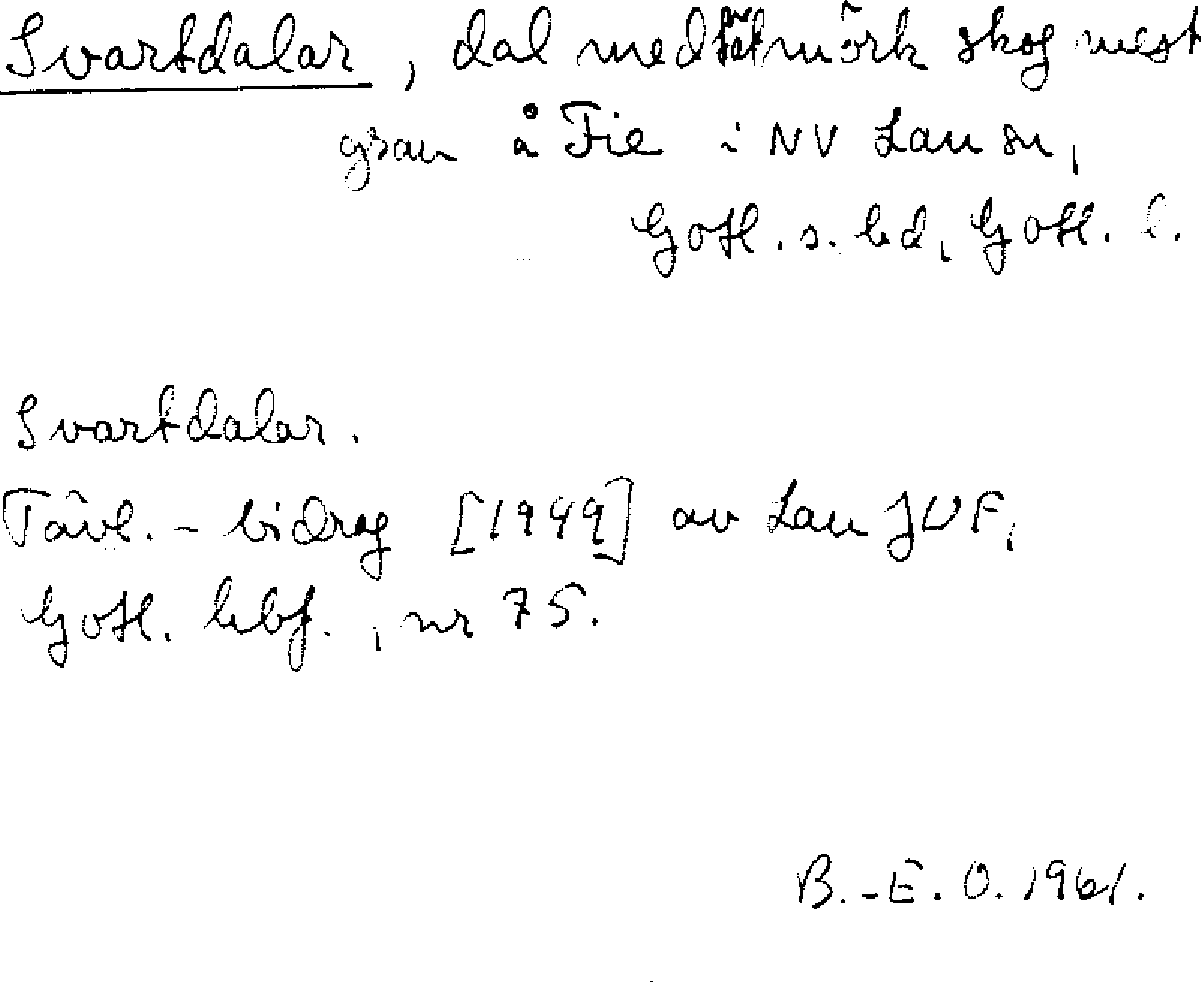 Svartdalar, dal med tät mörk skog mest
gran å Fie i NV Lau sn,
Gotl. s. hd, Gotl. l.
Svartdalar.
Tävl. - bidrag [1949] av Lau JUF,
Gotl. hbf., nr 75.
B.-E. O. 1961.